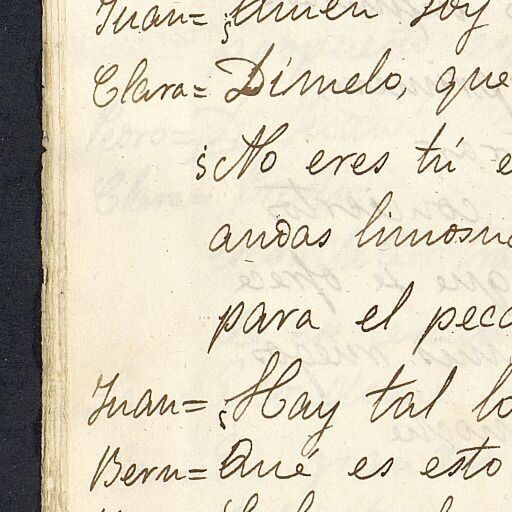 Juan= ¿Quién soy
Clara= Dímelo, que
¿No eres tú e
andas limosne
para el peca
Juan= ¿Hay tal lo
Bern= Qué es esto